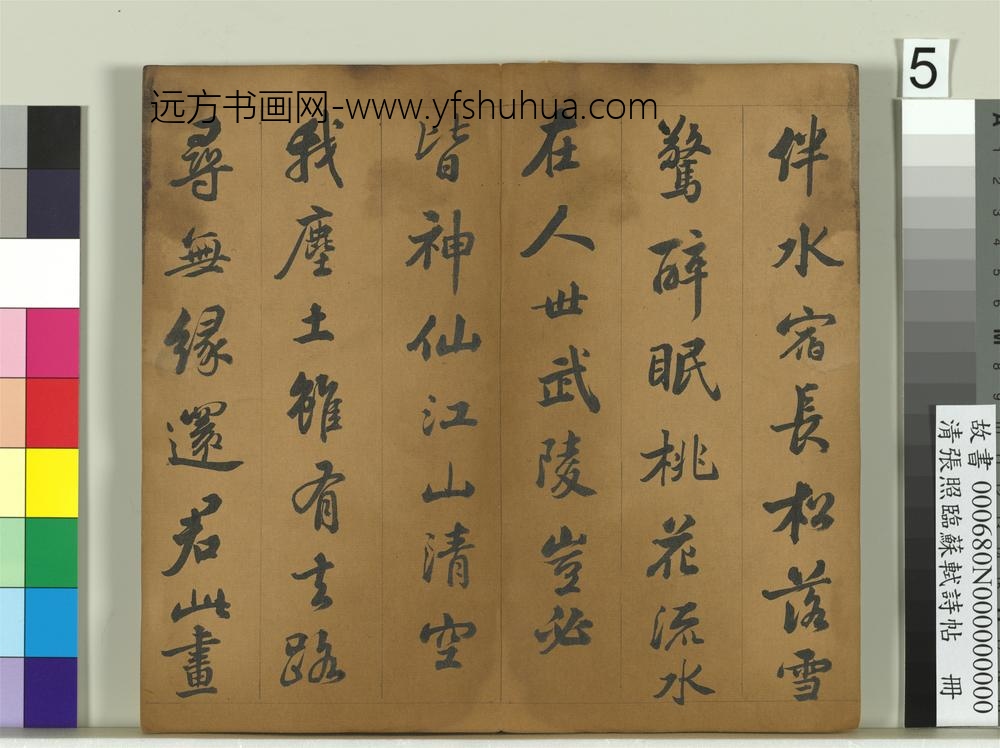 远方书画网-www.yfshuhua.com
5
伴水宿長松落雪
驚醉眠桃花流水
在人世武陵豈必
皆神仙江山清空
我塵土雖有去路
尋無緣還君此畫
故書 000680N000000000
清張照臨蘇軾詩帖 冊